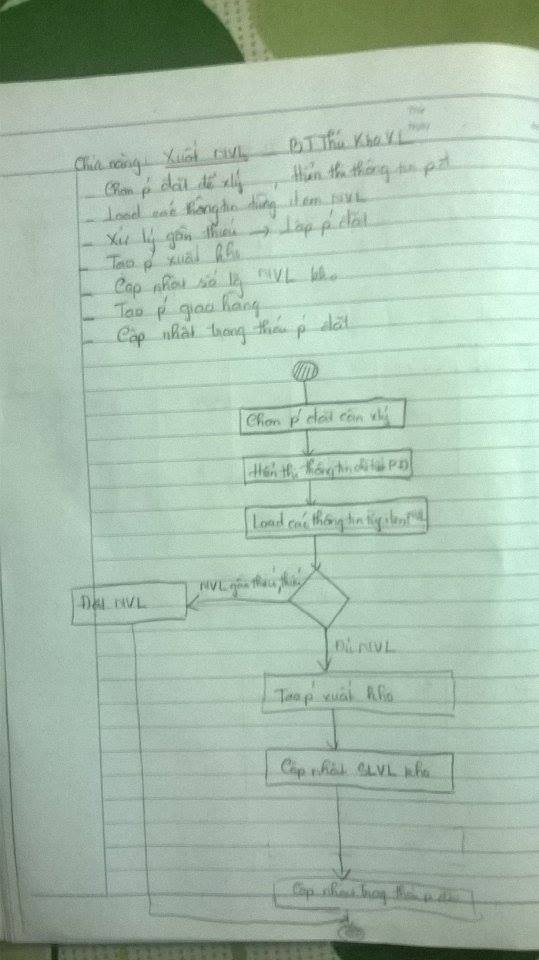 Chức năng: Xuất NVL - BT Thủ Kho VL
- Chọn p' đặt để xlý Hiển thị thông tin pđ
- Load các thông tin từng item NVL
- Xử lý gần thiếu → Lập p' đặt
- Tạo p' xuất kho
- Cập nhật số lg NVL kho
- Tạo p' giao hàng
- Cập nhật trạng thái p' đặt
Chọn p' đặt cần xlý
Hiển thị thông tin chi tiết PĐ
Load các thông tin từng item NVL
NVL gần thiếu, thiếu
Đặt NVL
Đủ NVL
Tạo p' xuất kho
Cập nhật SLVL kho
Cập nhật trạng thái p' đặt